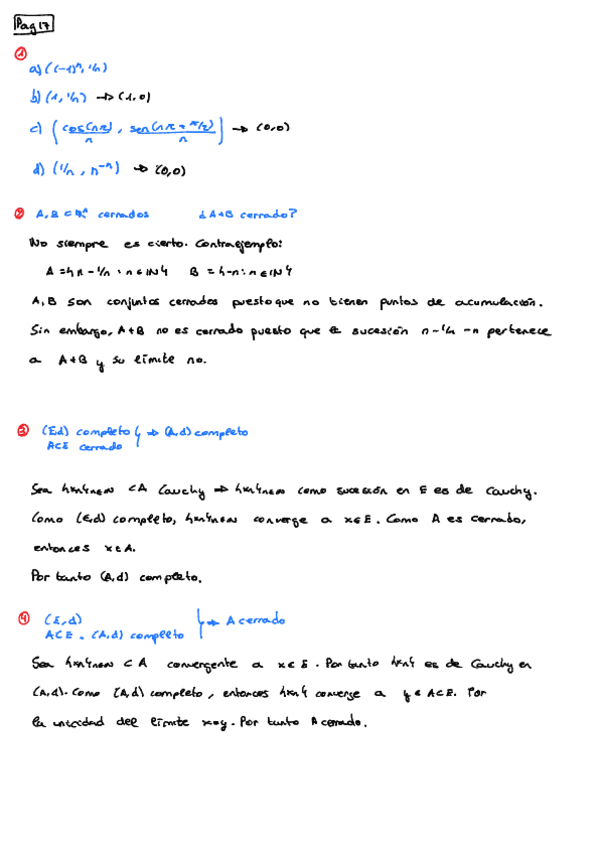 Pag 17
①
a) ((-1)ⁿ, 1/n)
b) (1, 1/n) → (1,0)
c) (cos(nπ)/n, sen(nπ + π/2)/n) → (0,0)
d) (1/n, n⁻ⁿ) → (0,0)
② A, B ⊂ ℝⁿ cerrados ¿A+B cerrado?
No siempre es cierto. Contraejemplo:
A = {n - 1/n : n ∈ ℕ} B = {-n : n ∈ ℕ}
A, B son conjuntos cerrados puesto que no tienen puntos de acumulación.
Sin embargo, A+B no es cerrado puesto que la sucesión n - 1/n - n pertenece
a A+B y su límite no.
③ (E,d) completo } ⇒ (A,d) completo
A⊂E cerrado
Sea {xn}n∈ℕ ⊂ A Cauchy ⇒ {xn}n∈ℕ como sucesión en E es de Cauchy.
Como (E,d) completo, {xn}n∈ℕ converge a x∈E. Como A es cerrado,
entonces x∈A.
Por tanto (A,d) completo.
④ (E,d) } ⇒ A cerrado
A⊂E. (A,d) completo
Sea {xn}n∈ℕ ⊂ A convergente a x∈E. Por tanto {xn} es de Cauchy en
(A,d). Como (A,d) completo, entonces {xn} converge a y∈A⊂E. Por
la unicidad del límite x=y. Por tanto A cerrado.